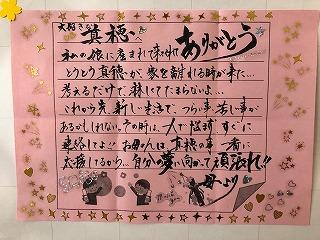 大好きな真穂へ
私の娘に産まれて来てくれてありがとう
とうとう真穂が家を離れる時が来た…
考えるだけで淋しくてたまらないよ…
これから先、新しい生活で、つらい事、苦しい事が
あるかもしれない。その時は、人で悩まずすぐに
連絡してよ!!お母さんは、真穂の事一番に
応援してるから…自分の夢に向って頑張れ!!
母より